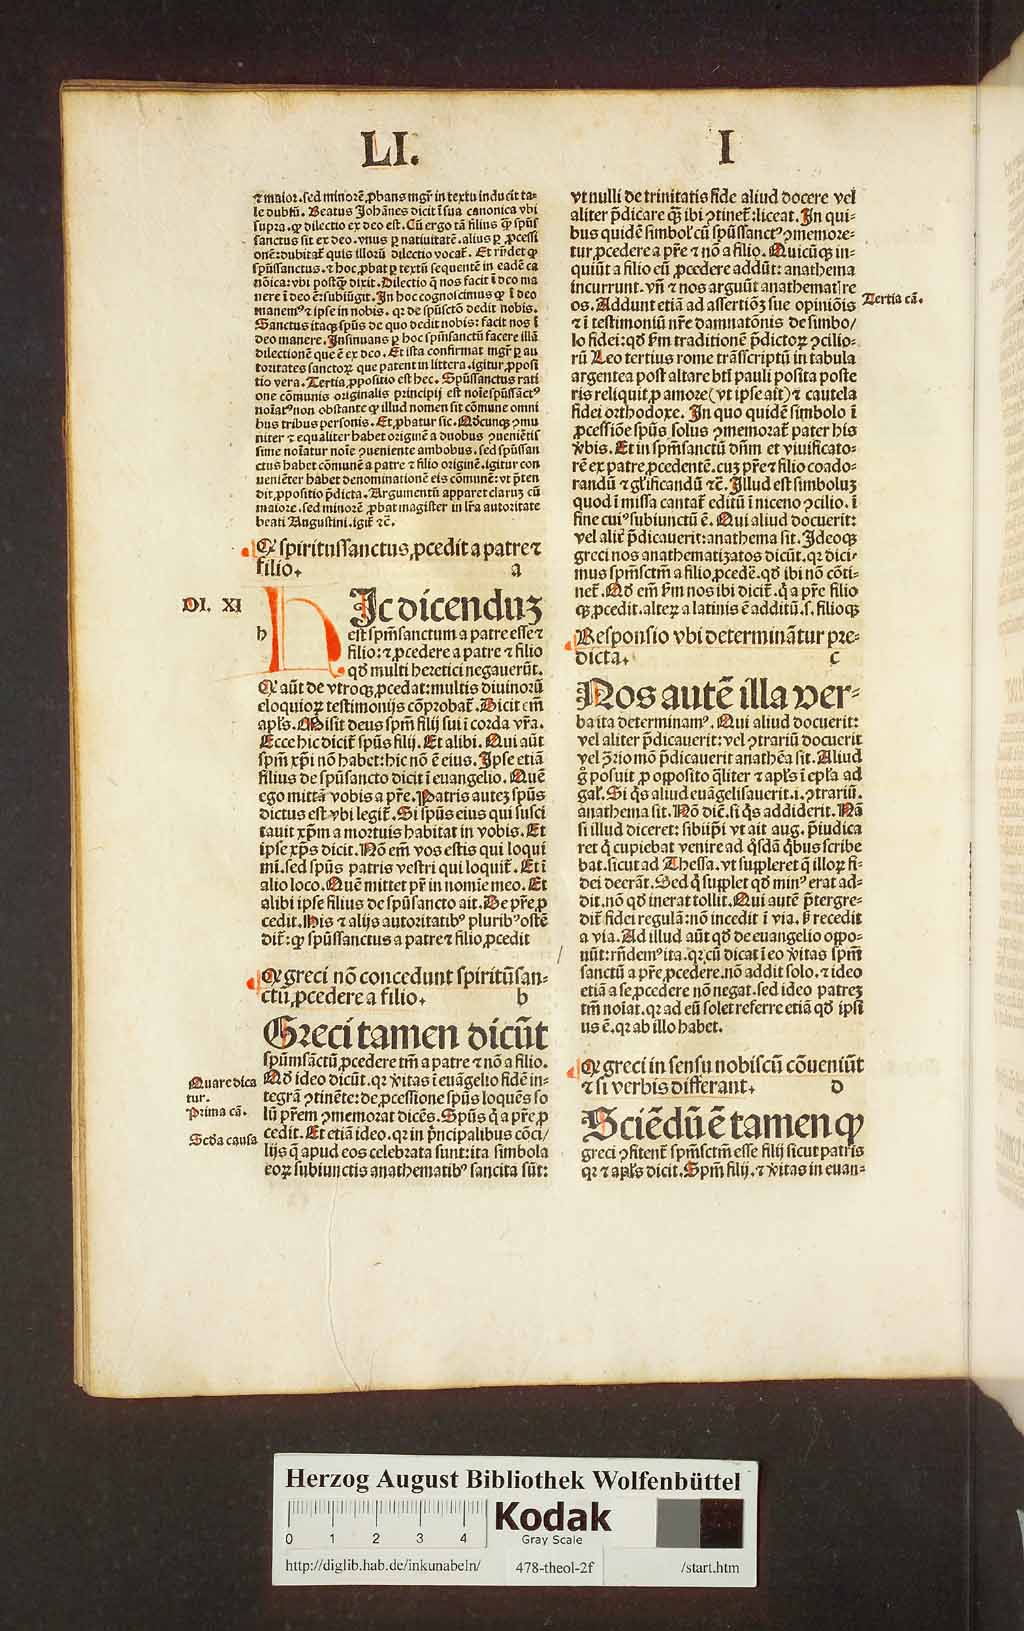 LI.
I
⁊ maior. sed minorē ꝓbans mgr̄ in textu inducit ta-
le dubiū. Beatus Johānes dicit ī sua canonica vbi
supra. ꝙ dilectio ex deo est. Cū ergo tā filius ꝙ̄ spūs
sanctus sit ex deo. vnus ꝑ natiuitatē. alius ꝑ ꝓcessi
onē: dubitat̄ quis illorū dilectio vocat̄. Et rn̄det ꝙ
spūssanctus. ⁊ hoc ꝓbat ꝑ textū sequentē in eadē ca
nōica: vbi postꝙ̄ dixit. Dilectio q̄ nos facit ī deo ma
nere ī deo ē: subiūgit. In hoc cognoscimus ꝙ ī deo
manemꝰ ⁊ ipse in nobis. qꝛ de spūsctō dedit nobis.
Sanctus itaqꝫ spūs de quo dedit nobis: facit nos ī
deo manere. Insinuans ꝑ hoc spm̄sanctū facere illā
dilectionē que ē ex deo. Et ista confirmat mgr̄ ꝑ au
toritates sanctoꝝ que patent in littera. igitur ꝓposi
tio vera. Tertia ꝓpositio est hec. Spūssanctus rati
one cōmunis originalis principij est noīe spūssāctꝰ
noīatꝰ non obstante ꝙ illud nomen sit cōmune omni
bus tribus personis. Et ꝓbatur sic. Qd̄cunqꝫ ꝯmu
niter ⁊ equaliter habet originē a duobus ꝯueniētis
sime noīatur noīe ꝯueniente ambobus. sed spūssan
ctus habet cōmunē a patre ⁊ filio originē. igitur con
ueniēter habet denominationē eis cōmunē: vt p̄ten
dit ꝓpositio p̄dicta. Argumentū apparet claruꝫ cū
maiore. sed minorē ꝓbat magister in lr̄a autoritate
beati Augustini. igit̄ ⁊c̄.
Qꝙ spiritussanctus ꝓcedit a patre ⁊
filio. a
DI. XI
h
Hic dicenduꝫ
est spm̄sanctum a patre esse ⁊
filio: ⁊ ꝓcedere a patre ⁊ filio
qd̄ multi heretici negauerūt.
Qꝙ aūt de vtroqꝫ ꝓcedat: multis diuinorū
eloquioꝝ testimonijs cōprobat̄. Dicit em̄
apl̄s. Misit deus spm̄ filij sui ī corda vr̄a.
Ecce hic dicit̄ spūs filij. Et alibi. Qui aūt
spm̄ xp̄i nō habet: hic nō ē eius. Ipse etiā
filius de spūsancto dicit ī euangelio. Quē
ego mittā vobis a pr̄e. Patris auteꝫ spūs
dictus est vbi legit̄. Si spūs eius qui susci
tauit xp̄m a mortuis habitat in vobis. Et
ipse xp̄s dicit. Nō em̄ vos estis qui loqui
mi. sed spūs patris vestri qui loquit̄. Et ī
alio loco. Quē mittet pr̄ in nomīe meo. Et
alibi ipse filius de spūsancto ait. De pr̄e ꝓ
cedit. His ⁊ alijs autoritatibꝰ pluribꝰ ostē
dit̄: ꝙ spūssanctus a patre ⁊ filio ꝓcedit
Qꝙ greci nō concedunt spiritūsan-
ctū ꝓcedere a filio. b
Greci tamen dicūt
spūmsāctū ꝓcedere tm̄ a patre ⁊ nō a filio.
Qd̄ ideo dicūt. qꝛ v̄itas ī euāgelio fidē in-
tegrā ꝯtinēte: de ꝓcessione spūs loquēs so
lū pr̄em ꝯmemorat dicēs. Spūs q̄ a pr̄e ꝓ
cedit. Et etiā ideo. qꝛ in p̄ncipalibus cōci/
lijs q̄ apud eos celebrata sunt: ita simbola
eoꝝ subiunctis anathematibꝰ sancita sūt:
Quare dica
tur.
Prima cā.
Scd̄a causa
vt nulli de trinitatis fide aliud docere vel
aliter p̄dicare ꝙ̄ ibi ꝯtinet̄: liceat. In qui-
bus quidē simbol' cū spūssanctꝰ ꝯmemore-
tur ꝓcedere a pr̄e ⁊ nō a filio. Quicūqꝫ in-
quiūt a filio eū ꝓcedere addūt: anathema
incurrunt. vn̄ ⁊ nos arguūt anathematꝭ re
os. Addunt etiā ad assertiōꝫ sue opiniōis
⁊ ī testimoniū nr̄e damnatōnis de simbo/
lo fidei: qd̄ ẜm traditionē p̄dictoꝝ ꝯcilio-
rū Leo tertius rome trāscriptū in tabula
argentea post altare btī pauli posita poste
ris reliquit ꝓ amore (vt ipse ait) ⁊ cautela
fidei orthodoxe. In quo quidē simbolo ī
ꝓcessiōe spūs solus ꝯmemorat̄ pater his
v̄bis. Et in spm̄sanctū dn̄m et viuificato-
rē ex patre ꝓcedentē. cuꝫ pr̄e ⁊ filio coado-
randū ⁊ gl'ificandū ⁊c̄. Illud est simboluꝫ
quod ī missa cantat̄ editū ī niceno ꝯcilio. ī
fine cuiꝰ subiunctū ē. Qui aliud docuerit:
vel alit̄ p̄dicauerit: anathema sit. Ideoqꝫ
greci nos anathematizatos dicūt. qꝛ dici-
mus spm̄sctm̄ a filio ꝓcedē. qd̄ ibi nō cōti-
net̄. Qd̄ em̄ ẜm nos ibi dicit̄. q̄ a pr̄e filio
qꝫ ꝓcedit. alteꝝ a latinis ē additū. s. filioqꝫ
Tertia cā.
Responsio vbi determināntur pre-
dicta. c
Nos autē illa ver-
ba ita determinamꝰ. Qui aliud docuerit:
vel aliter p̄dicauerit: vel ꝯtrariū docuerit
vel ꝯ̄rio mō p̄dicauerit anathēa sit. Aliud
g̊ posuit ꝓ opposito q̄liter ⁊ apl̄s ī epl̄a ad
gal̄. Si q̄s aliud euāgelisauerit. i. ꝯtrariū.
anathema sit. Nō dic̄. si q̄s addiderit. Nā
si illud diceret: sibiip̄i vt ait aug. p̄iudica
ret q̄ cupiebat venire ad q̄sdā q̄bus scribe
bat. sicut ad Thessa. vt suppleret q̄ illoꝝ fi-
dei deerāt. Sed q̄ supplet qd̄ minꝰ erat ad-
dit. nō qd̄ inerat tollit. Qui autē p̄tergre-
dit̄ fidei regulā: nō incedit ī via. ẜ recedit
a via. Ad illud aūt qd̄ de euangelio oppo-
nūt: rn̄demꝰ ita. qꝛ cū dicat ī eo v̄itas spm̄
sanctū a pr̄e ꝓcedere. nō addit solo. ⁊ ideo
etiā a se ꝓcedere nō negat. sed ideo patreꝫ
tm̄ noīat. qꝛ ad eū solet referre etiā qd̄ ipsi
us ē. qꝛ ab illo habet.
Qꝙ greci in sensu nobiscū cōueniūt
⁊ si verbis differant. d
Sciēdū ē tamen ꝙ
greci ꝯfitent̄ spm̄sctm̄ esse filij sicut patris
qꝛ ⁊ apl̄s dicit. Spm̄ filij. ⁊ v̄itas in euan-
Herzog August Bibliothek Wolfenbüttel
0 1 2 3 4
Kodak
Gray Scale
http://diglib.hab.de/inkunabeln/ 478-theol-2f /start.htm